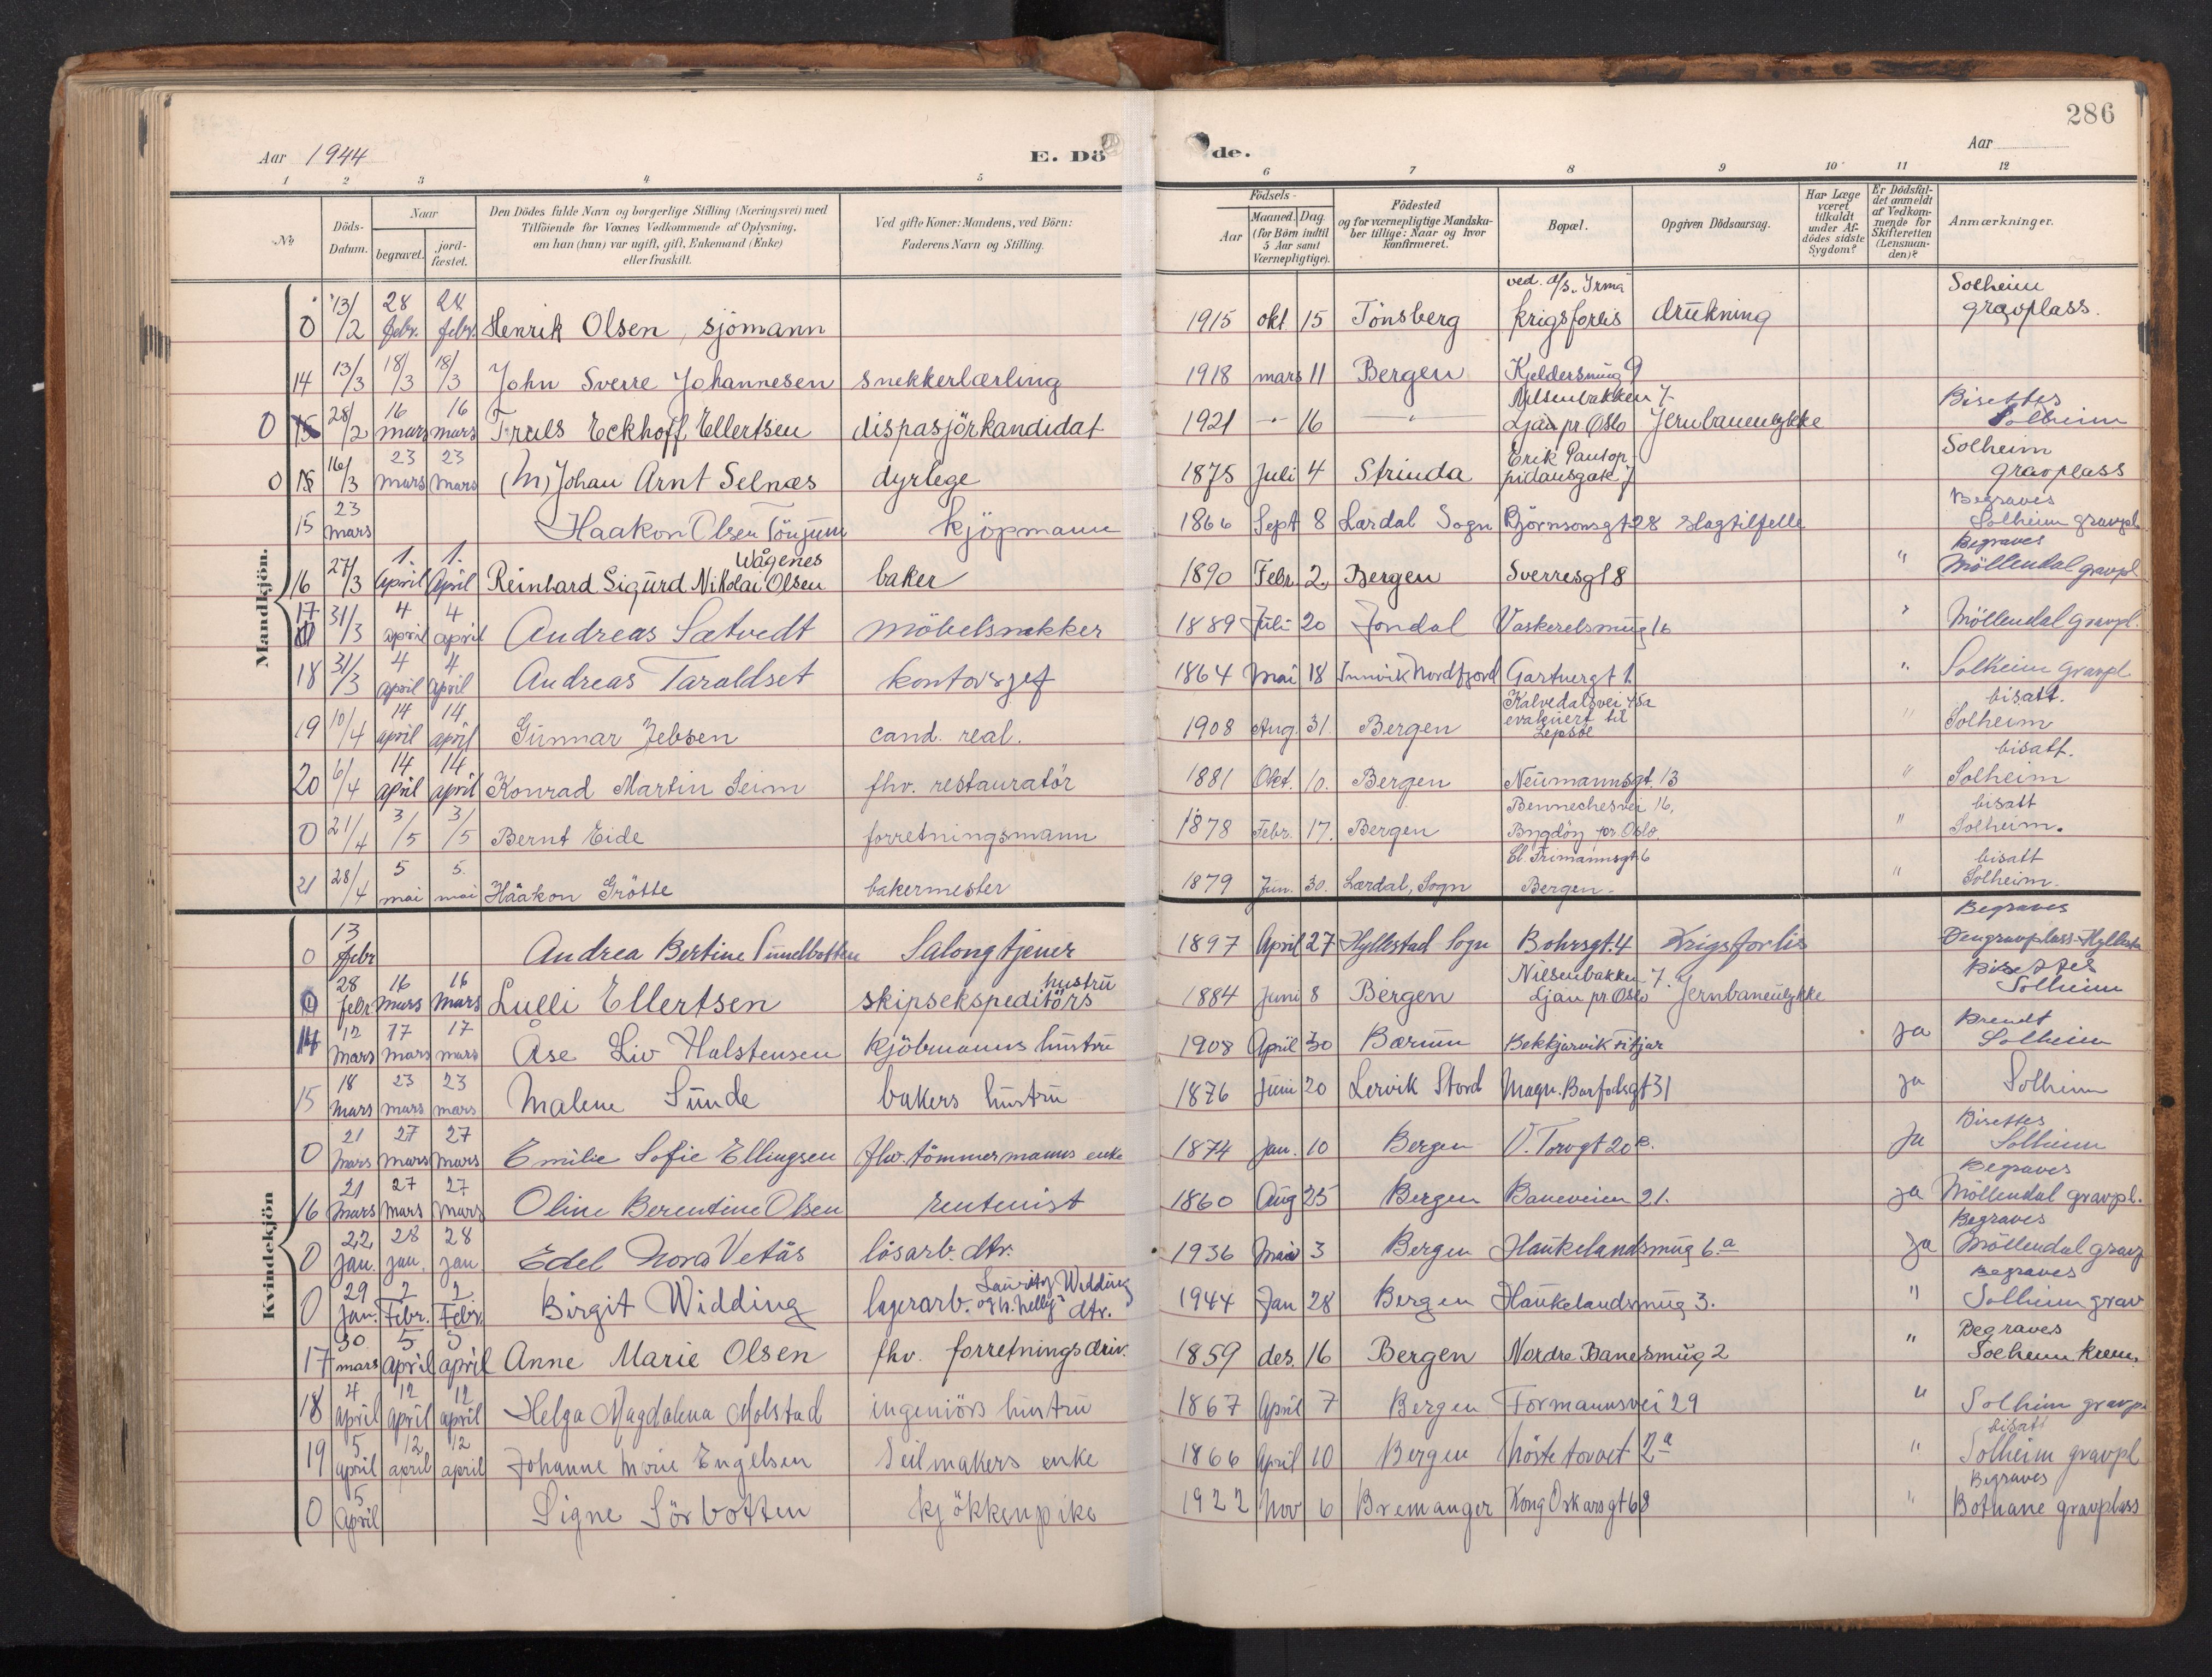 286
Aar 1944
E. Dö
de.
Aar
1 2 3 4 5 6 7 8 9 10 11 12
No
Döds-Datum.
Naar
begravet.
jord-fæstet.
Den Dödes fulde Navn og borgerlige Stilling (Næringsvei) med
Tilföiende for Voxnes Vedkommende af Oplysning,
om han (hun) var ugift, gift, Enkemand (Enke)
eller fraskilt.
Ved gifte Koner: Mandens, ved Börn:
Faderens Navn og Stilling.
Födsels-
Aar
Maaned. Dag.
(for Börn indtil
5 Aar samt
Værnepligtige).
Födested
og for værnepligtige Mandska-
ber tillige: Naar og hvor
konfirmeret.
Bopæl.
Opgiven Dödsaarsag.
Har Læge
været
tilkaldt
under Af-
dödes sidste
Sygdom?
Er Dödsfal-
det anmeldt
af Vedkom-
mende for
Skifteretten
(Lensman-
den)?
Anmærkninger.
Mandkjön.
0 13/2 28 febr. 28 febr. Henrik Olsen, sjömann 1915 okt 15 Tönsberg ved d/s. Irma krigsforlis drukning Solheim gravplass.
14 13/3 18/3 18/3 John Sverre Johannesen snekkerlærling 1918 mars 11 Bergen Kjeldersmug 9
0 15 28/2 16 mars 16 mars Truls Eckhoff Ellertsen dispasjörkandidat 1921 -"- 16 -"- Nilsenbakken 7 Ljan pr Oslo Jernbaneulykke Bisettes Solheim
0 15 16/3 23 mars 23 mars (M) Johan Arnt Selnæs dyrlege 1875 Juli 4 Strinda Erik Pontoppidansgate 7 Solheim gravplass
15 23 mars Haakon Olsen Tönjum kjöpmann 1866 Sept 8 Lærdal Sogn Björnsonsgt 28 slagtilfelle Begraves Solheim gravpl
16 27/3 1. April 1. April Reinhard Sigurd Nikolai Olsen Wågenes baker 1890 Febr 2. Bergen Sverresgt 8 " Begraves Möllendal gravpl
17 31/3 4 april 4 april Andreas Sætvedt möbelsnekker 1889 Juli 20 Jondal Vaskerelsmug 16 " Möllendal gravpl.
18 31/3 4 april 4 april Andreas Taraldset kontorsjef 1864 Mai 18 Innvik Nordfjord Gartnergt 1. " Solheim gravpl
19 10/4 14 april 14 april Gunnar Jebsen cand. real. 1908 Aug. 31. Bergen Kalvedalsvei 45a evakuert til Lepsöe " bisatt. Solheim
20 6/4 14 april 14 april Konrad Martin Seim fhv. restauratör 1881 Okt. 10. Bergen Neumannsgt. 13 " bisatt. Solheim
0 21/4 3/5 3/5 Bernt Eide forretningsmann 1878 Febr. 17. Bergen Bennechesvei 16, Bygdöy pr Oslo. " bisatt Solheim.
21 28/4 5 mai 5. mai Håakon Grötte bakermester 1879 Jun. 30. Lærdal, Sogn Cl. Frimannsgt. 6 Bergen. " bisatt Solheim.
Kvindekjön
0 13 febr Andrea Bertine Sundbotten Salongtjener 1897 April 27 Hyllestad Sogn Bohrsgt. 4 Krigsforlis Begraves
0 28 febr. 16 Mars 16 Mars Lulli Ellertsen skipsekspeditörs hustru 1884 Juni 8 Bergen Nilsenbakken 7. Ljan pr Oslo Jernbaneulykke Bisettes Solheim
14 12 Mars 17 Mars 17 mars Åse Liv Halstensen kjöbmanns hustru 1908 April 30 Bærum Bekkjarvik Fitjar ja Brendt Solheim
15 18 Mars 23 mars 23 mars Malene Sunde bakers hustru 1876 Juni 20 Lervik Stord Magn. Barfodsgt 31 ja Solheim
0 21 Mars 27 Mars 27 Mars Emilie Sofie Ellingsen fhv. tömmermanns enke 1874 Jan. 10 Bergen V. Torvgt 20 c. Ja Bisettes Solheim
16 21 Mars 27 Mars 27 Mars Oline Berentine Olsen rentenist 1860 Aug 25 Bergen Baneveien 21. ja Begraves Möllendal gravpl.
0 22 Jan. 28 jan. 28 jan Edel Nora Vetås lösarb. dtr. 1936 Mai 3 Bergen Haukelandsmug 6.a Ja Begraves Möllendal grav
0 29 Jan. 2 Febr. 2 Febr. Birgit Widding lagerarb. Lauritz Widding og h. Nelly's dtr. 1944 Jan 28 Bergen Haukelandsmug 3. " Begraves Solheim grav
17 30 mars 5 april 5 april Anne Marie Olsen fhv. forretningsdriv. 1859 des. 16 Bergen Nordre Banesmug 2 " Begraves Solheim krem.
18 4 April 12 april 12 april Helga Magdalena Molstad ingeniörs hustru 1867 April 7 Bergen Formannsvei 29 " Solheim gravpl
19 5 april 12 april 12 april Johanne Marie Engelsen Seilmakers enke 1866 April 10 Bergen Nöstetorvet 2a " bisatt Solheim gravpl
0 5 April Signe Sörbotten kjökkenpike 1922 Nov 6 Bremanger Kong Oskarsgt 68 " Begraves gravplass